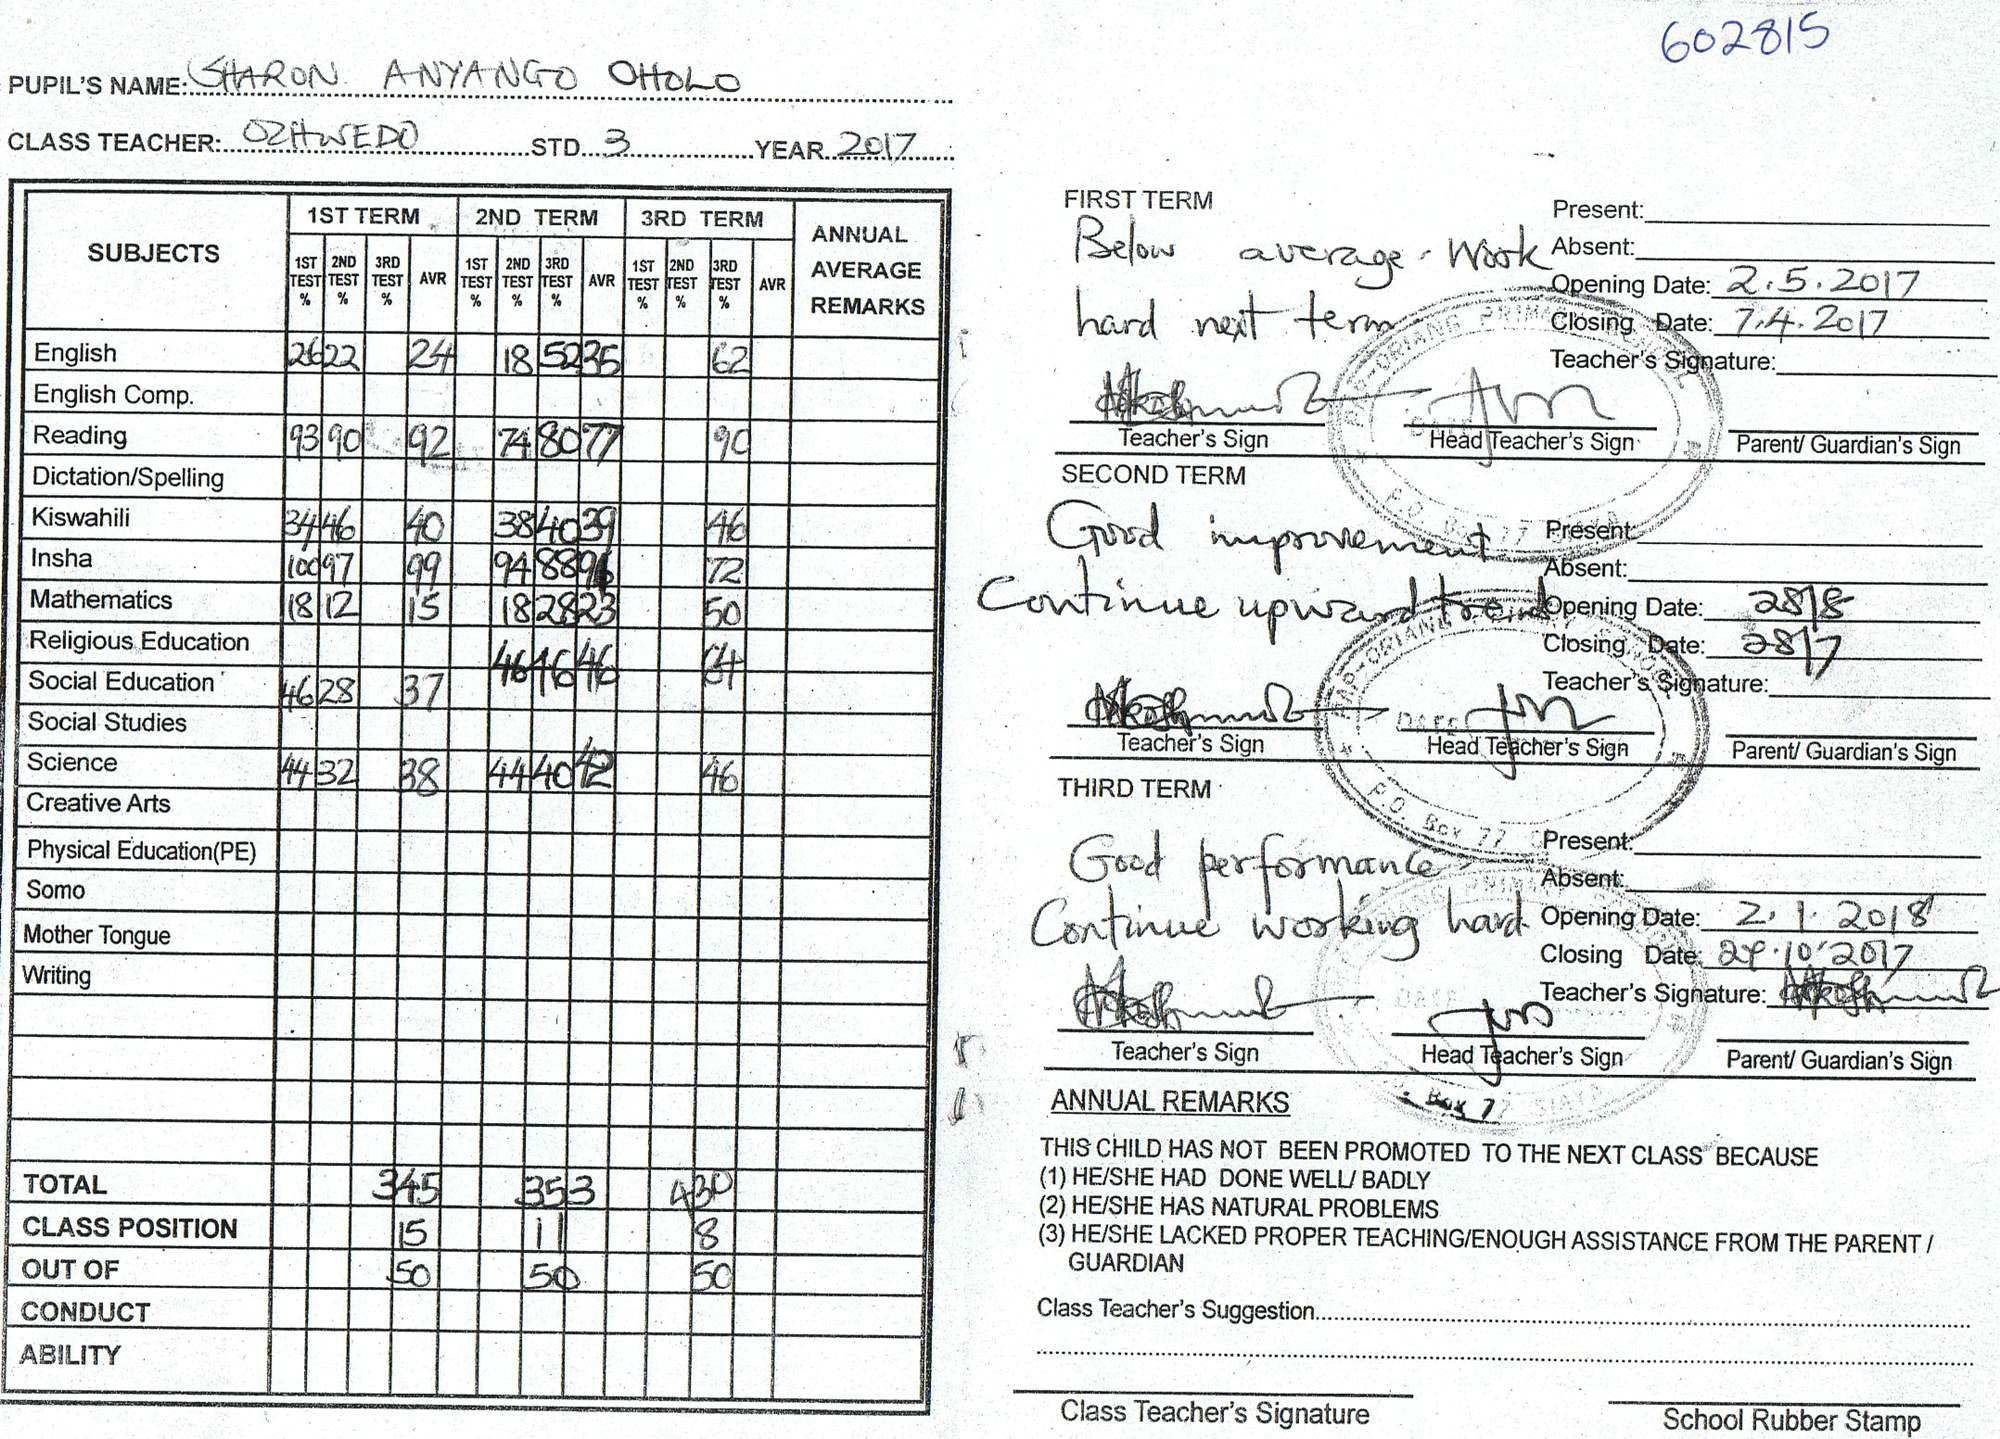 602815
PUPIL'S NAME: SHARON ANYANGO OHOLO
CLASS TEACHER: OZHWEDO STD 3 YEAR 2017
SUBJECTS 1ST TERM 2ND TERM 3RD TERM ANNUAL AVERAGE REMARKS
1ST TEST % 2ND TEST % 3RD TEST % AVR 1ST TEST % 2ND TEST % 3RD TEST % AVR 1ST TEST % 2ND TEST % 3RD TEST % AVR
English 26 22 24 18 52 35 62
English Comp.
Reading 93 90 92 74 80 77 90
Dictation/Spelling
Kiswahili 34 46 40 38 40 39 46
Insha 100 97 99 94 88 91 72
Mathematics 18 12 15 18 28 23 50
Religious Education 46 46 46 64
Social Education 46 28 37
Social Studies
Science 44 32 38 44 40 42 46
Creative Arts
Physical Education(PE)
Somo
Mother Tongue
Writing
TOTAL 345 353 430
CLASS POSITION 15 11 8
OUT OF 50 50 50
CONDUCT
ABILITY
FIRST TERM
Below average. Work
hard next term
Present:
Absent:
Opening Date: 2.5.2017
Closing Date: 7.4.2017
Teacher's Signature:
Teacher's Sign Head Teacher's Sign Parent/ Guardian's Sign
SECOND TERM
Good improvement
Continue upward trend
Present:
Absent:
Opening Date: 28/8
Closing Date: 28/7
Teacher's Signature:
DATE
P.O. Box 77
Teacher's Sign Head Teacher's Sign Parent/ Guardian's Sign
THIRD TERM
Good performance
Continue working hard
Present:
Absent:
Opening Date: 2.1.2018
Closing Date: 10.2017
Teacher's Signature:
Teacher's Sign Head Teacher's Sign Parent/ Guardian's Sign
Box 77 SIAYA
ANNUAL REMARKS
THIS CHILD HAS NOT BEEN PROMOTED TO THE NEXT CLASS BECAUSE
(1) HE/SHE HAD DONE WELL/ BADLY
(2) HE/SHE HAS NATURAL PROBLEMS
(3) HE/SHE LACKED PROPER TEACHING/ENOUGH ASSISTANCE FROM THE PARENT /
GUARDIAN
Class Teacher's Suggestion
Class Teacher's Signature School Rubber Stamp